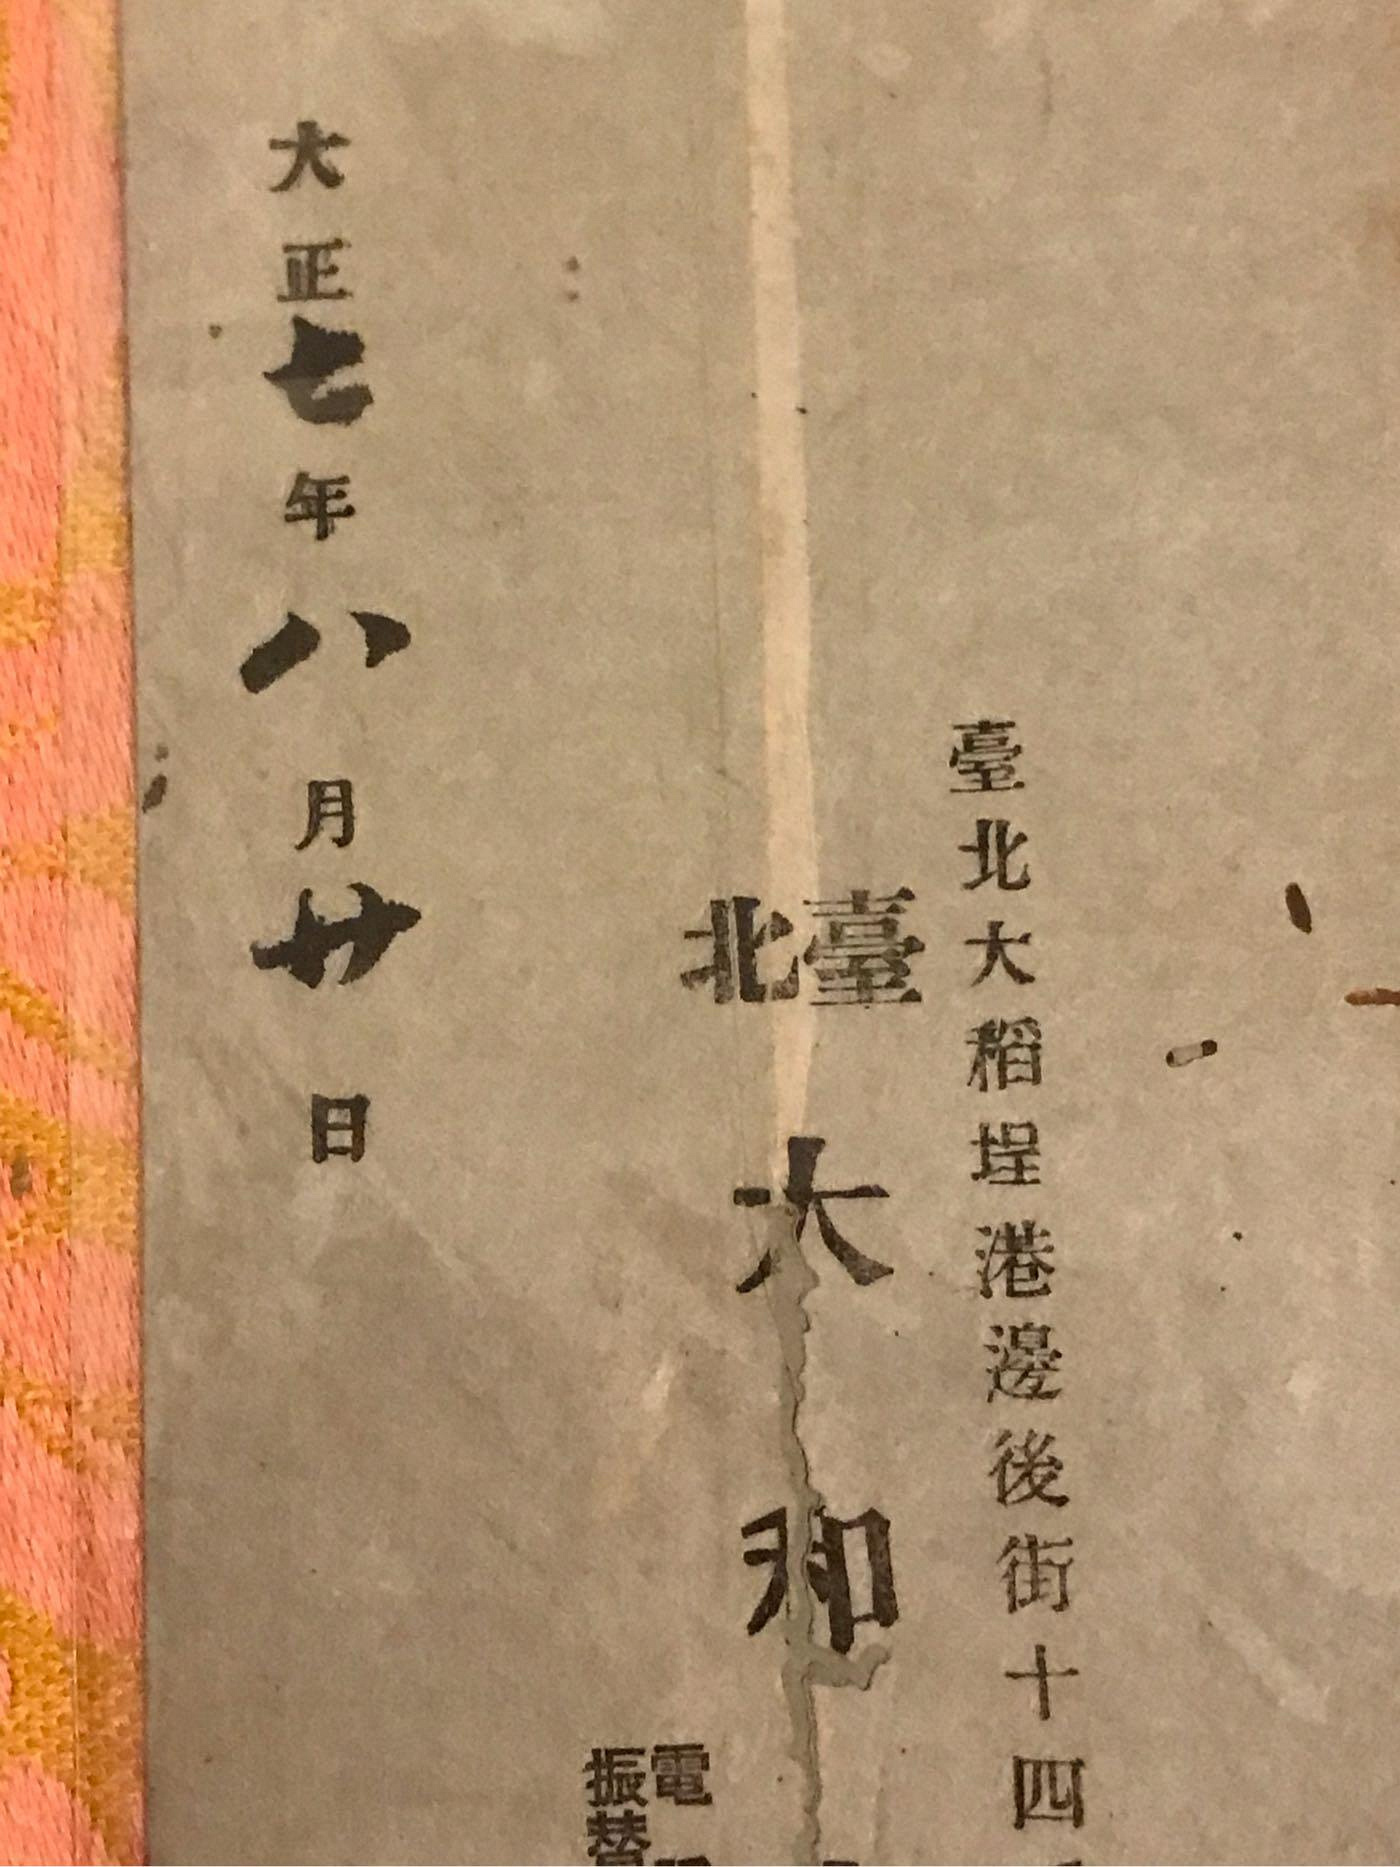 臺北大稻埕港邊後街十四
臺北
大和
電
振替
大正七年八月廿日